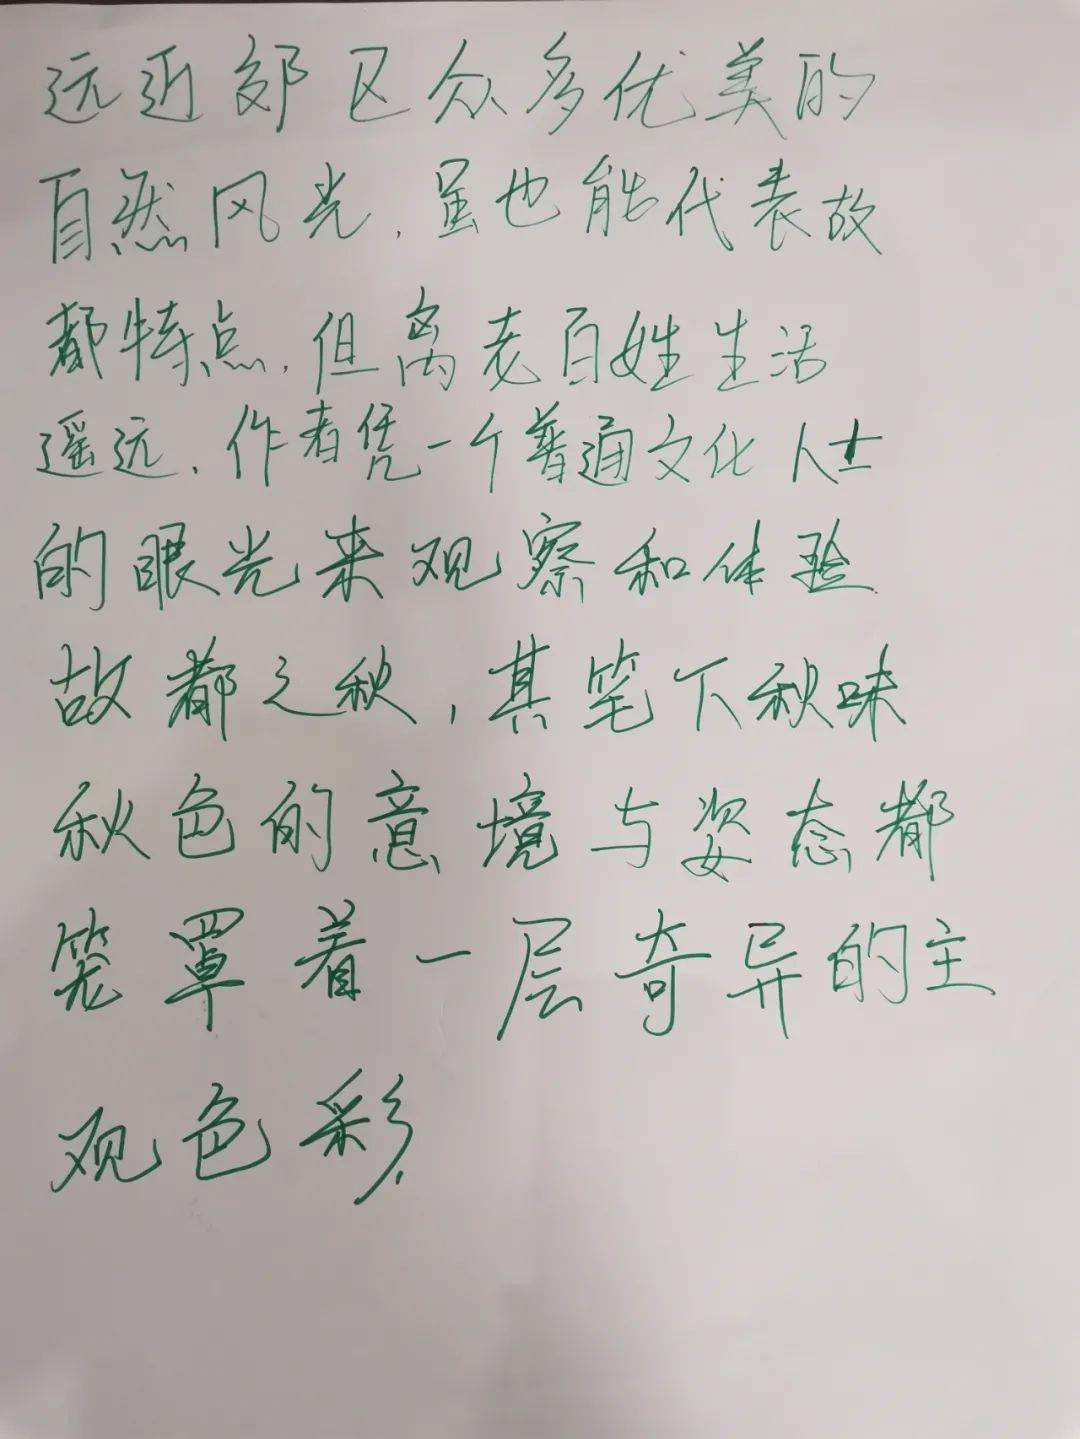 远近郊区众多优美的
自然风光，虽也能代表故
都特点，但离老百姓生活
遥远，作者凭一个普通文化人士
的眼光来观察和体验
故都之秋，其笔下秋味
秋色的意境与姿态都
笼罩着一层奇异的主
观色彩.